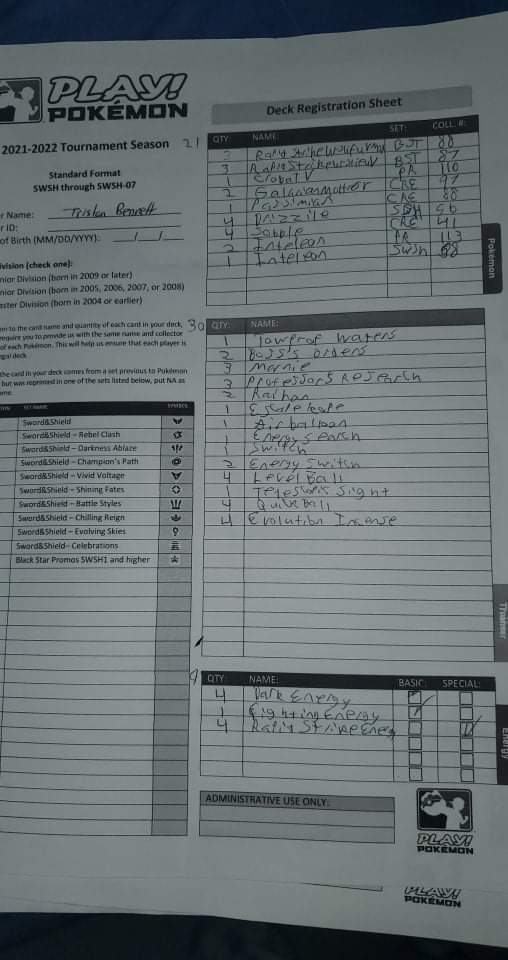 PLAY!
POKÉMON
2021-2022 Tournament Season
Standard Format
SWSH through SWSH-07
r Name: Tristan Bennett
r ID:
of Birth (MM/DD/YYYY): __/__/__
ivision (check one):
nior Division (born in 2009 or later)
nior Division (born in 2005, 2006, 2007, or 2008)
aster Division (born in 2004 or earlier)
on to the card name and quantity of each card in your deck,
require you to provide us with the same name and collector
of each Pokémon. This will help us ensure that each player is
gal deck.
the card in your deck comes from a set previous to Pokémon
but was reprinted in one of the sets listed below, put NA as
ame.
SET NAME SYMBOL
Sword&Shield
Sword&Shield – Rebel Clash
Sword&Shield – Darkness Ablaze
Sword&Shield – Champion's Path
Sword&Shield – Vivid Voltage
Sword&Shield – Shining Fates
Sword&Shield – Battle Styles
Sword&Shield – Chilling Reign
Sword&Shield – Evolving Skies
Sword&Shield – Celebrations
Black Star Promos SWSH1 and higher
Deck Registration Sheet
21
QTY: NAME: SET: COLL. #:
3 BST 88
3 BST 87
1 CrobatV DA 110
2 Galarian CRE 97
1 Passimian CRE 88
4 Drizzile SSH 56
4 Sobble CRE 41
2 Inteleon 113
1 Inteleon SWSh 58
Pokémon
30
QTY: NAME:
1 Towerof Waters
2 Boss's Orders
3 Marnie
3 Professors Research
2 Raihan
1 Escape rope
1 Air balloon
1 Energy search
1 Switch
2 Energy Switch
4 Level Ball
1 Telescopic Sight
4 Quick Ball
4 Evolution Incense
Trainer
9
QTY: NAME: BASIC: SPECIAL:
4 Dark Energy
1 Fighting Energy
4 Rapid Strike Energ
Energy
ADMINISTRATIVE USE ONLY:
PLAY!
POKÉMON
PLAY!
POKÉMON